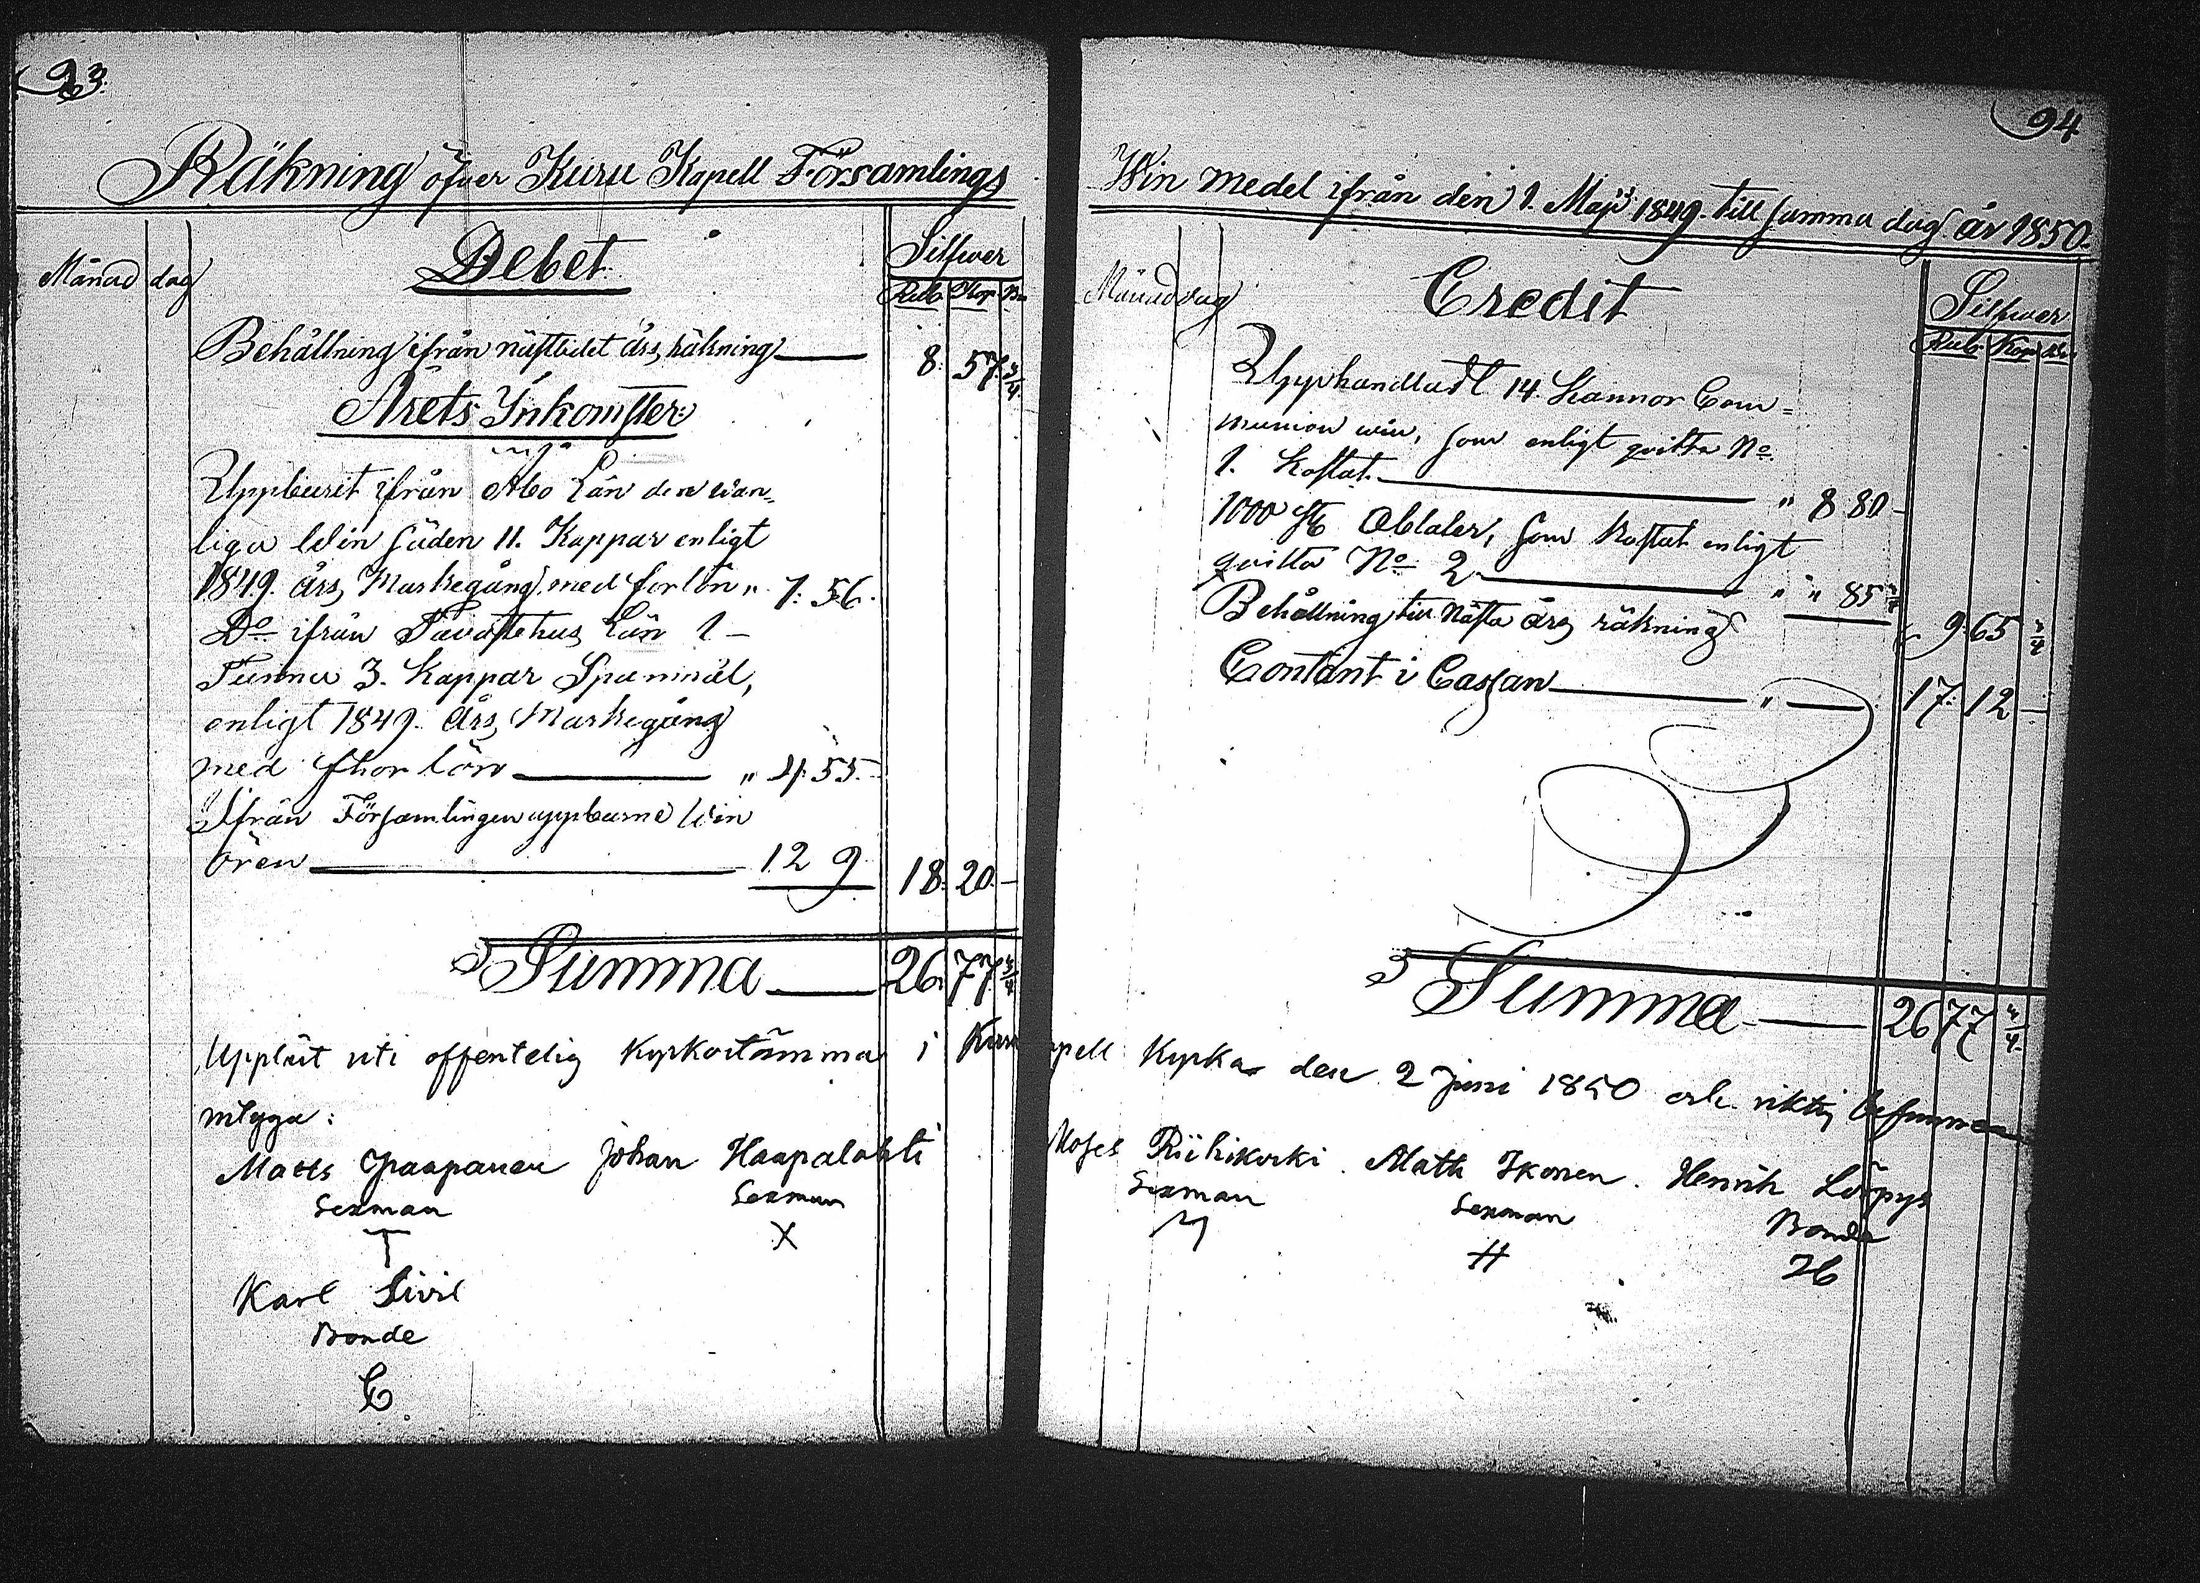 93.
Räkning öfver Kuru Kapell Församlings
Debet
Silfwer
Månad dag
Rub. Kop.
Behållning ifrån nästledet års räkning 8. 57. 3/4
Årets Inkomster:
Uppburit ifrån Åbo Län den wan-
liga Win säden 11. Kappar enligt
1849. års Markegång med forlön " 1. 56.
Do ifrån Tavastehus Län 1
Tunna 3. Kappar Spanmål,
enligt 1849. Års Markegång
med fhorlön " 4. 55.
Ifrån Församlingen uppburne Win
ören 12 9 18. 20. —
Summa 26. 77 3/4
Uppläst uti offentelig Kyrkostämma i Kuru
intyga:
Matts Haapanen Johan Haapalahti
Sexman Sexman
T X
Karl Sivil
Bonde
94
Win medel ifrån den 1. Maji 1849. till samma dag år 1850.
Månad dag
Credit
Silfwer
Rub. Kop.
Upphandladt 14. Kannor Com=
munion win, som enligt qvitto No
1. Kostat " 8 80 —
1000 st Oblater, som kostat enligt
qvitto No 2 " " 85 3/4 9. 65 3/4
Behållning till Nästa års räkning
Contant i Cassan " 17. 12 —
Summa 26 77 3/4
pell Kyrka den 2 Juni 1850 och riktig befunnen
Moses Riihikoski. Matts Ikonen. Henrik Löpys
Sexman Sexman Bonde
H